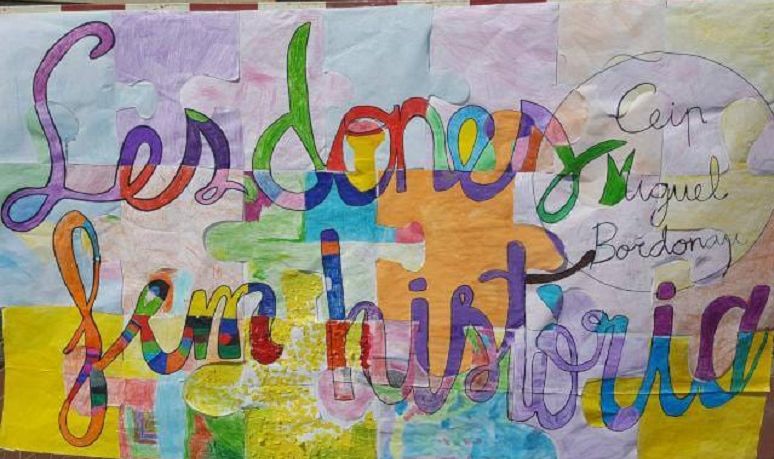 Les dones
fem història
Ceip
Miguel
Bordonau